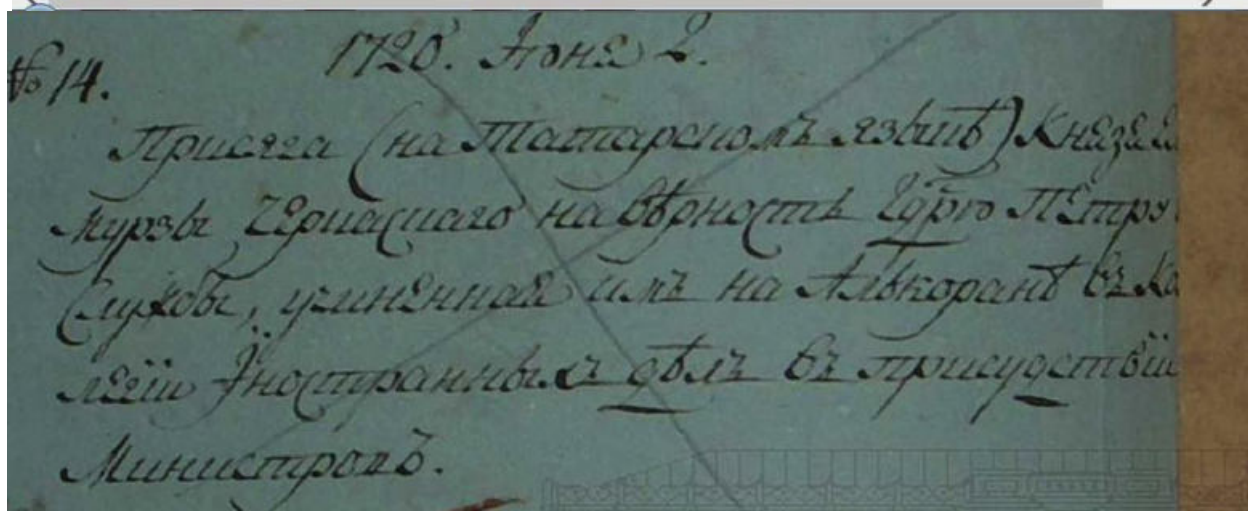 № 14. 1720. Июня 2.
Присяга (на Татарскомъ языкѣ) Князя
Мурзы Черкаскаго на вѣрность Гдрю Петру
службы, учиненная имъ на Алькоранѣ въ Ко
легіи Iностранныхъ дѣлъ въ присудствіи
Министровъ.